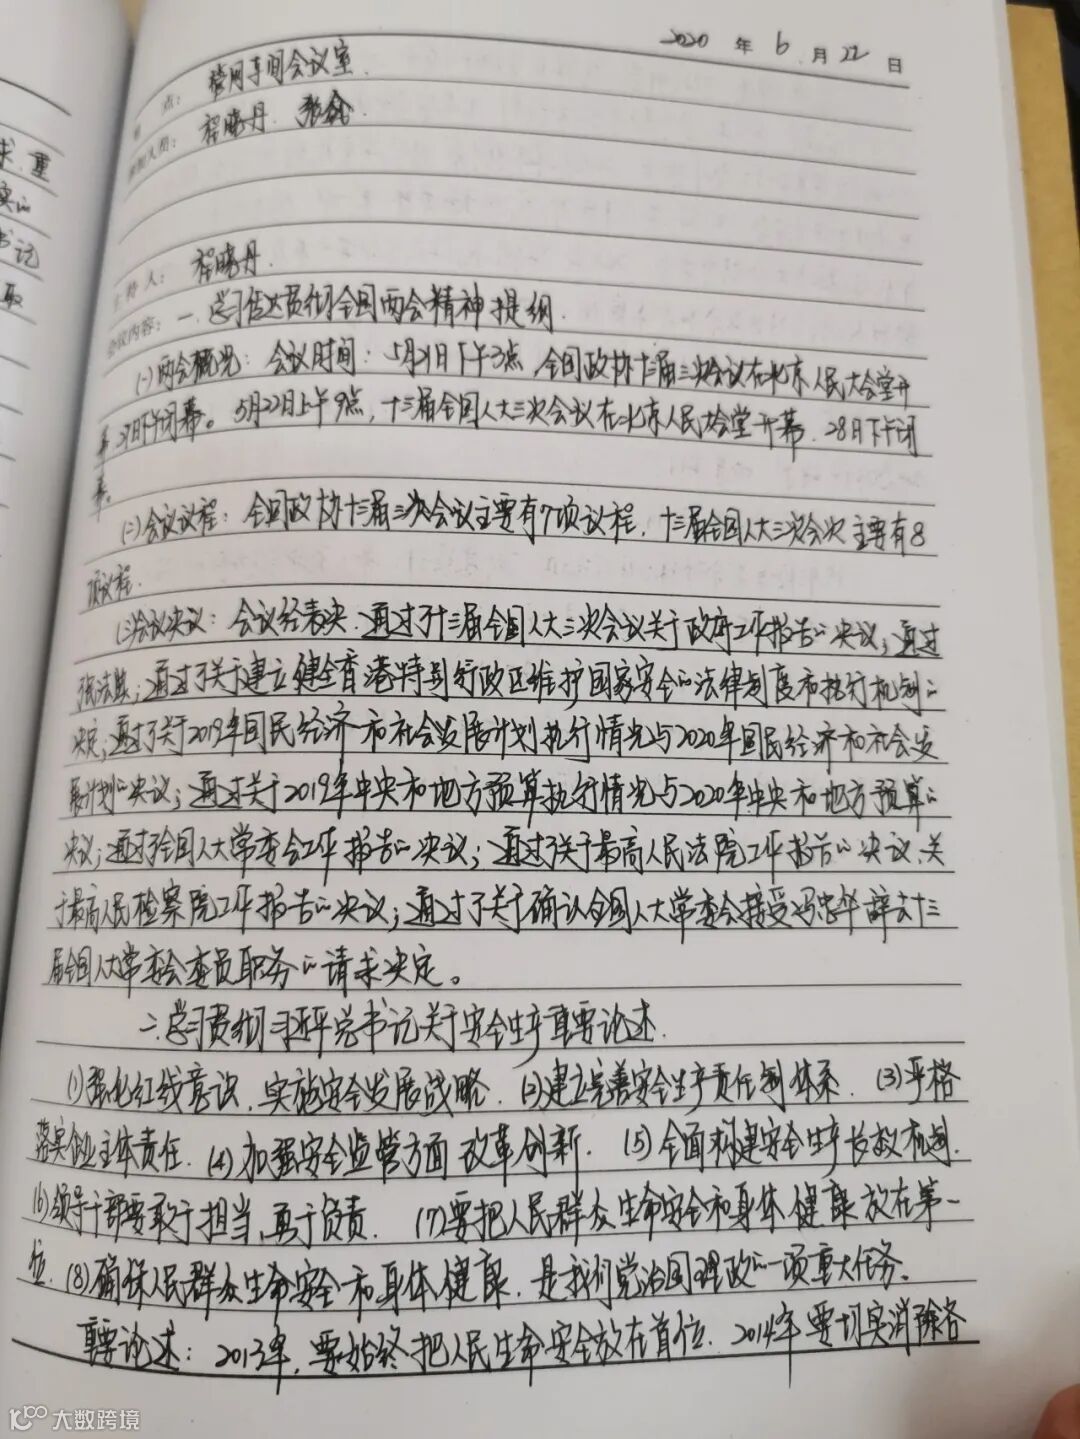 2020 年 6 月 22 日
点： 管网车间会议室.
参加人员： 程晓丹. 张鑫.
主持人： 程晓丹.
会议内容：一. 学习传达贯彻全国两会精神提纲.
(一)两会概况：会议时间：5月21日下午3点，全国政协十三届三次会议在北京人民大会堂开
幕.27日下午闭幕。5月22日上午9点，十三届全国人大三次会议在北京人民大会堂开幕.28日下午闭
幕。
(二)会议议程：全国政协十三届三次会议主要有7项议程，十三届全国人大三次会次主要有8
项议程.
(三)会议决议：会议经表决.通过了十三届全国人大三次会议关于政府工作报告的决议；通过
民法典；通过了关于建立健全香港特别行政区维护国家安全的法律制度和执行机制的
决定；通过了关于2019年国民经济和社会发展计划执行情况与2020年国民经济和社会发
展计划的决议；通过关于2019年中央和地方预算执行情况与2020年中央和地方预算的
决议；通过了全国人大常委会工作报告的决议；通过了关于最高人民法院工作报告的决议、关
于最高人民检察院工作报告的决议；通过了关于确认全国人大常委会接受冯忠华辞去十三
届全国人大常委会委员职务的请求决定。
二.学习贯彻习近平总书记关于安全生产重要论述.
(1)强化红线意识.实施安全发展战略. (2)建立完善安全生产责任制体系. (3)严格
落实企业主体责任. (4)加强安全监管方面改革创新. (5)全面构建安全生产长效机制.
(6)领导干部要敢于担当、勇于负责. (7)要把人民群众生命安全和身体健康放在第一
位. (8)确保人民群众生命安全和身体健康，是我们党治国理政的一项重大任务。
重要论述：2013年，要始终把人民生命安全放在首位. 2014年要切实消除各
求、重
实的
书记
取
大数跨境